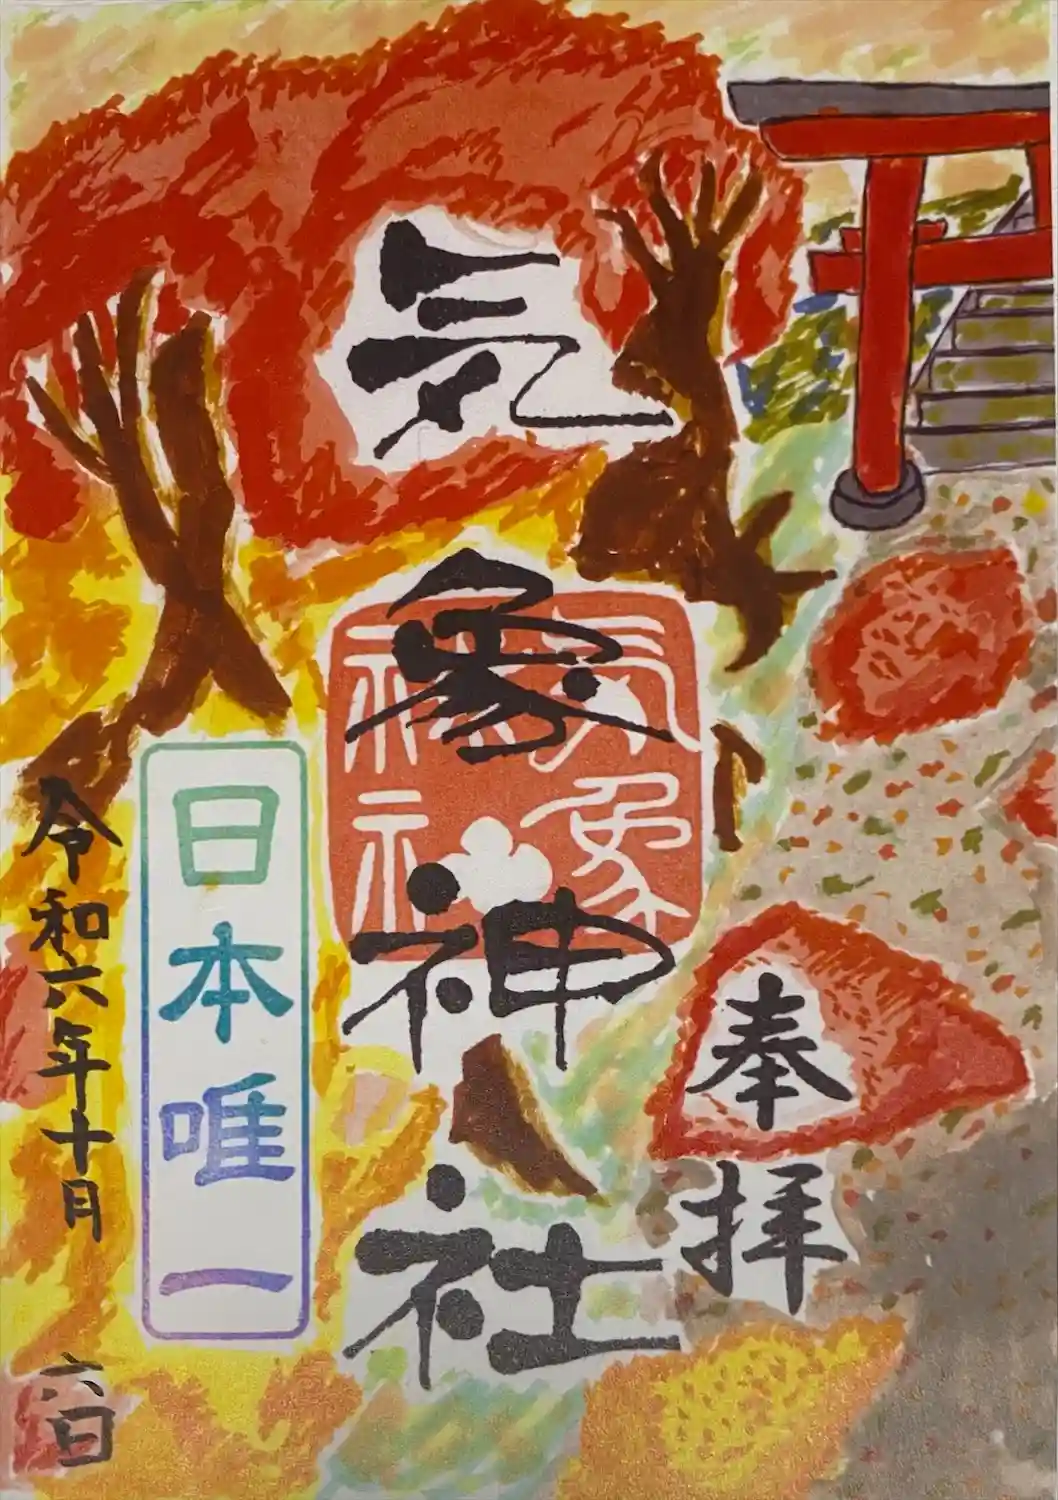 奉拝
気象神社
気象
神社
日本唯一
令和六年十月 六日